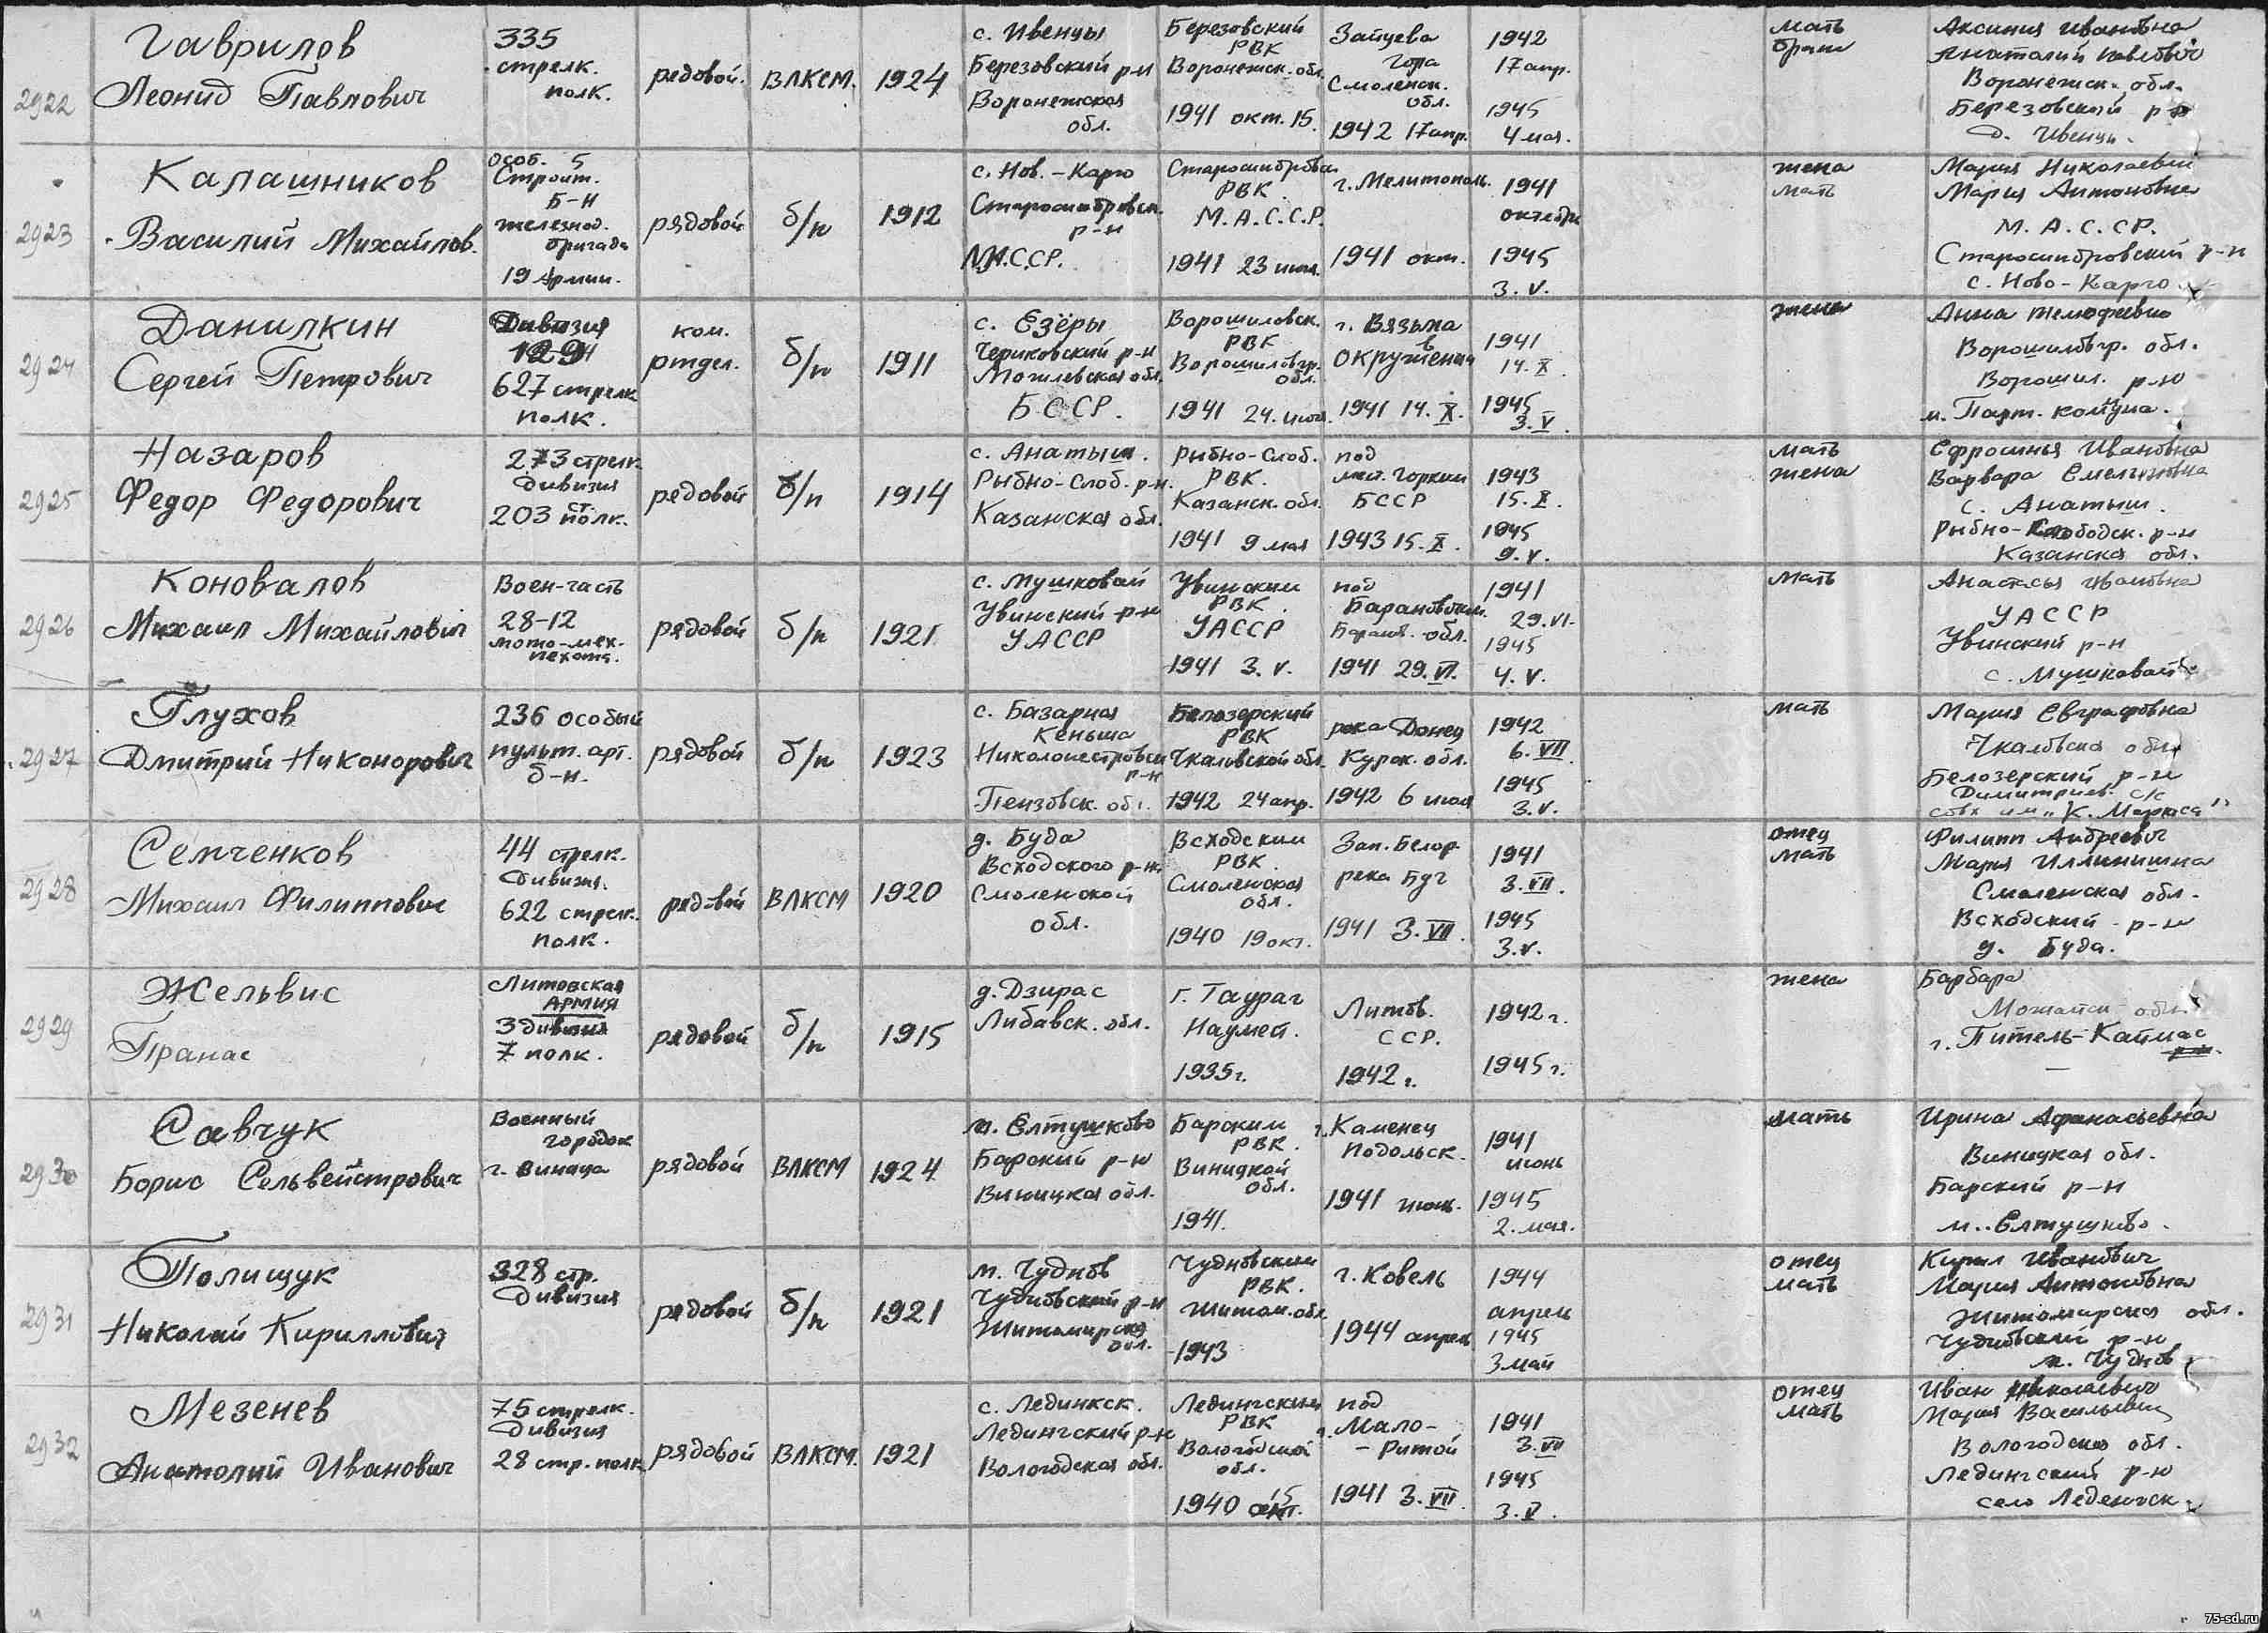 2922
Гаврилов
Леонид Павлович
335
стрелк.
полк.
редовой.
ВЛКСМ.
1924
с. Ивенцы
Березовский р-н
Воронежская
обл.
Березовский
РВК
Воронежск. обл.
1941 окт. 15.
Зайцева
гора
Смоленск.
обл.
1942 17 апр.
1942
17 апр.
1945
4 мая.
мать
брат
Аксиния Ивановна
Анатолий Павлович
Воронежск. обл.
Березовский р-н
д. Ивенцы.
2923
Калашников
Василий Михайлов.
особ. 5
Строит.
Б-н
железнод.
бригада
19 Армии.
рядовой
б/п
1912
с. Нов.-Карго
Старосиндровск.
р-н
М.А.С.С.Р.
РВК
М.А.С.С.Р.
1941 23 июн.
г. Мелитополь.
1941 окт.
1941
октябрь
1945
3. V.
жена
мать
Мария Николаевн
Мария Антоновна
М. А. С. СР.
Старосиндровский р-н
с. Ново-Карго
2924
Данилкин
Сергей Петрович
Дивизия
129
627 стрелк
полк.
ком.
отдел.
б/п
1911
с. Езёры
Чериковский р-н
Могилевская обл.
БССР.
Ворошиловск.
РВК
Ворошиловгр.
обл.
1941 24. июл.
г. Вязьма
в
окружении
1941 14. X.
1941
14. X.
1945
3. V.
жена
Анна Тимофеевна
Ворошиловгр. обл.
Ворошил. р-н
и. Парт. коммуна.
2925
Назаров
Федор Федорович
273 стрелк
дивизия
203 ст. полк.
редовой
б/п
1914
с. Анатыш.
Рыбно-Слоб. р-н.
Казанская обл.
Рыбно-Слоб.
РВК.
Казанск. обл.
1941 9 мая
под
мст. Горкии
БССР
1943 15. X.
1943
15. X.
1945
9. V.
мать
жена
Ефросинья Ивановна
Варвара Емельяновна
с. Анатыш.
Рыбно-Слободск. р-н
Казанская обл.
2926
Коновалов
Михаил Михайлович
Воен-часть
28-12
мото-мех.
пехота.
рядовой
б/п
1921
с. Мушковай
Увинский р-н
УАССР
Увинским
РВК.
УАССР
1941 3. V.
под
Барановичи.
Баранов. обл.
1941 29. VI.
1941
29. VI.
1945
4. V.
мать
Анастасья Ивановна
УАССР
Увинский р-н
с. Мушковай
2927
Глухов
Дмитрий Никонорович
236 особый
пульт. арт.
б-н.
рядовой
б/п
1923
с. Базарная
Кеньша
Николопестровск
р-н
Пензовск. обл.
Белозерский
РВК
Чкаловской обл.
1942 24 апр.
река Донец
Курск. обл.
1942 6 июля
1942
6. VII.
1945
3. V.
мать
Мария Евграфовна
Чкаловская обл.
Белозерский р-н
Димитриев. с/с
совх им „К. Маркса"
2928
Семченков
Михаил Филиппович
44 стрелк.
Дивизия.
622 стрелк.
полк.
редовой
ВЛКСМ
1920
д. Буда
Всходского р-на
Смоленской
обл.
Всходским
РВК.
Смоленская
обл.
1940 19 окт.
Зап. Белор
река Буг
1941 3. VII.
1941
3. VII.
1945
3. V.
отец
мать
Филипп Андреевич
Мария Иллинишна
Смоленская обл.
Всходский р-н
д. Буда.
2929
Жельвис
Пранас
Литовская
Армия
3 дивизия
7 полк.
рядовой
б/п
1915
д. Дзирас
Либавск. обл.
г. Таураг
Наумет.
1935 г.
Литов.
ССР.
1942 г.
1942 г.
1945 г.
жена
Барбара
г. Питель-Каймас
2930
Савчук
Борис Сельвейстрович
Военный
городок
г. Виница
рядовой
ВЛКСМ
1924
м. Елтушково
Барский р-н
Виницкая обл.
Барским
РВК.
Виницкой
обл.
1941.
г. Каменец
Подольск.
1941 июнь.
1941
июнь
1945
2. мая.
мать
Ирина Афанасьевна
Виницкая обл.
Барский р-н
м. Елтушково.
2931
Полищук
Николай Кириллович
328 стр.
Дивизия
редовой
б/п
1921
м. Чуднов
Чудновский р-н
Житомирская
обл.
Чудновским
РВК.
Житом. обл
1943
г. Ковель
1944 апрель
1944
апрель
1945
3 май
отец
мать
Кирил Иванович
Мария Антоновна
Житомирская обл.
Чудновский р-н
м. Чуднов
2932
Мезенев
Анатолий Иванович
75 стрелк.
Дивизия
28 стр. полк
рядовой
ВЛКСМ.
1921
с. Лединкск.
Ледингский р-н
Вологодская обл.
Ледингским
РВК
Вологодской
обл.
1940 15 окт.
под
г. Мало-
-Ритой
1941 3. VII.
1941
3. VII
1945
3. V.
отец
мать
Иван Николаевич
Мария Васильевна
Вологодская обл.
Ледингский р-н
село Леденгск.
75-sd.ru